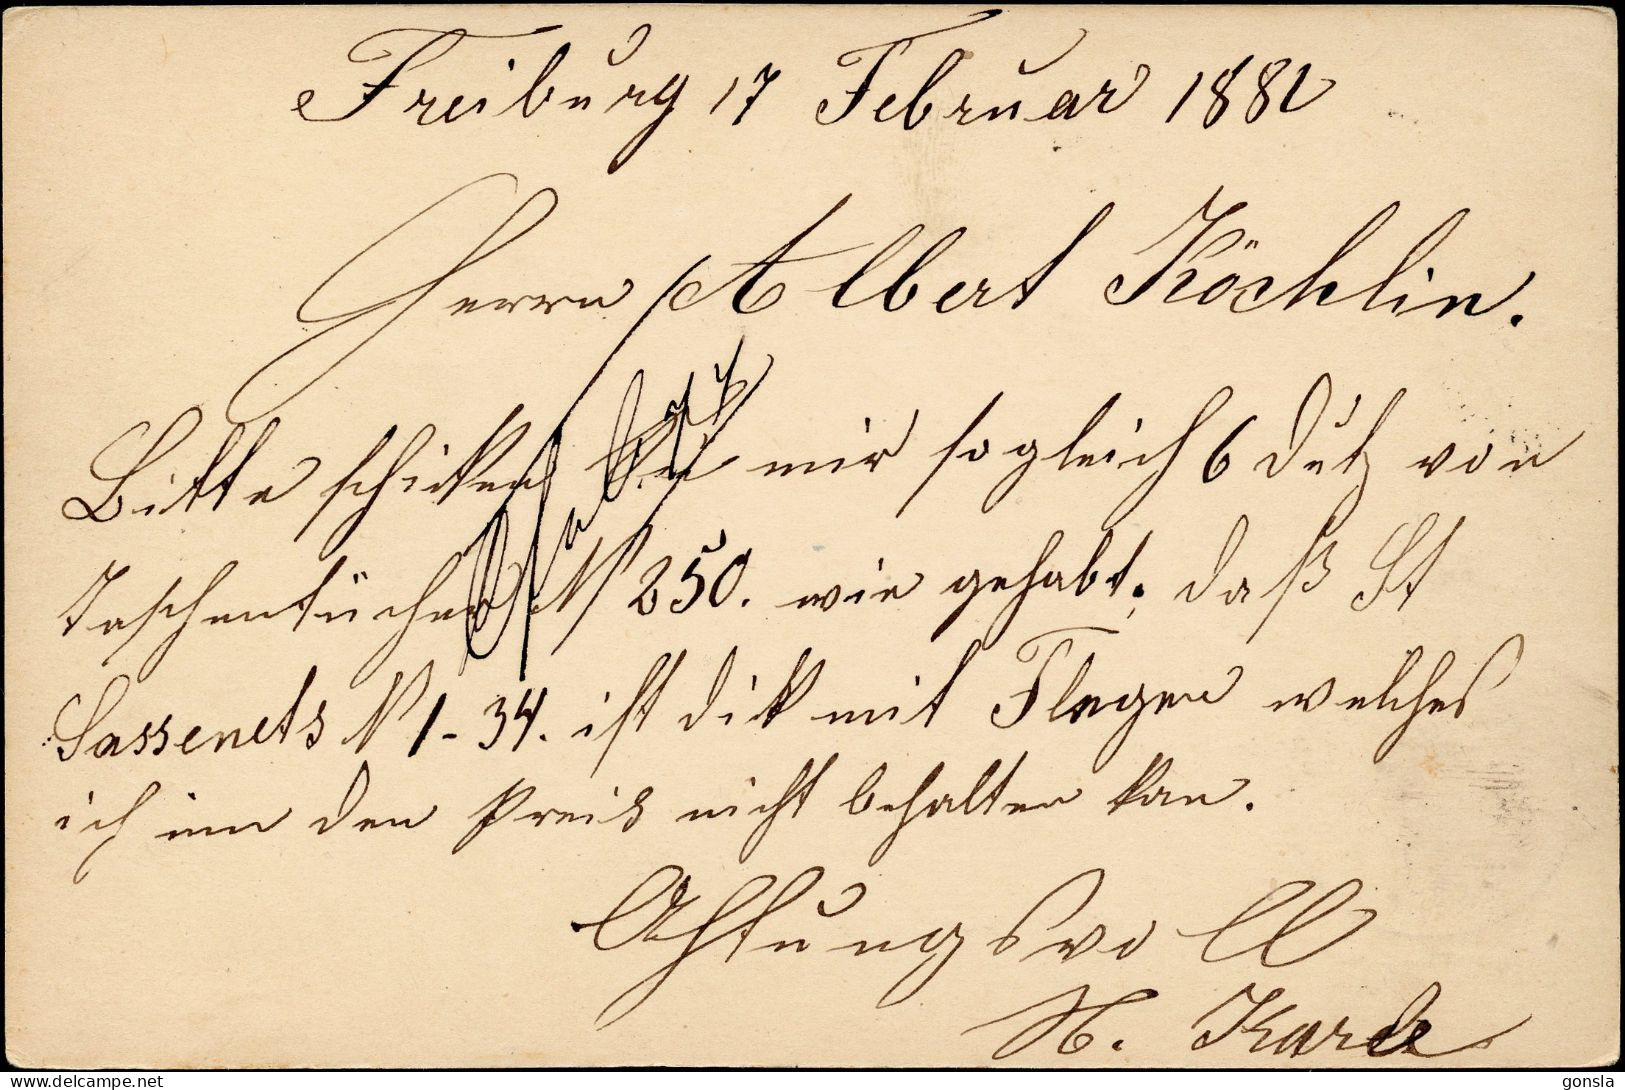 Freiburg 17 Februar 1882
Herrn Albert Köchlin.
Bitte schicken Sie mir sogleich 6 Dutz von
Taschentücher N 250. wie gehabt; daß St
Sassenets N 1-34. ist dik mit Flegen welches
ich um den Preis nicht behalten kan.
Achtungsvoll
delcampe.net
gonsla